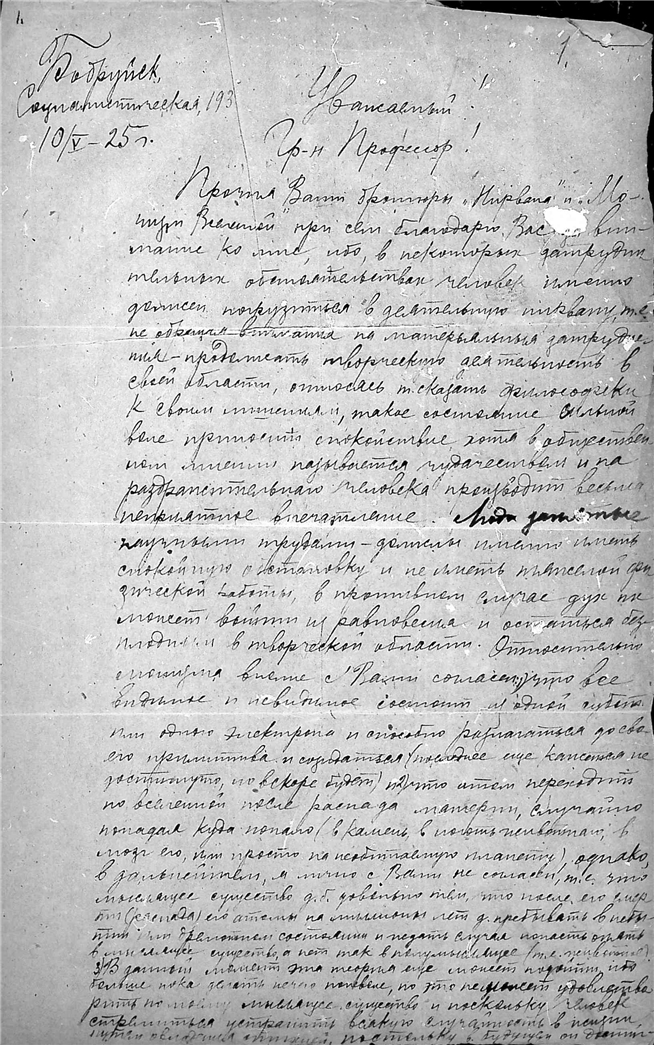 1.
Бобруйск,
Социалистическая, 193
10/V – 25 г.
Уважаемый!
Гр-н Профессор!
Прочтя Ваши брошюры „Нирвана" и „Мо-
низм Вселенной" при сем благодарю Вас за вни-
мание ко мне, ибо, в некоторых затрудни
тельных обстоятельствах человек именно
должен погрузиться в деятельную нирвану, т.е.
не обращая внимания на материальныя затрудне-
ния – продолжать творческую деятельность в
своей области, относясь т. сказать философски
к своим лишениям, такое состояние сильной
воле приносит спокойствие хотя в обществен
ном мнении называется чудачеством и на
раздражительнаго человека производит весьма
неприятное впечатление. Люди занятые
научными трудами – должны именно иметь
спокойную обстановку и не иметь тяжелой фи
зической работы, в противном случае дух их
может войти из равновесия и остаться без
плодным в творческой области. Относительно
монизма вполне с Вами согласен, что все
видимое и невидимое состоит из одной субст.
или одного электрона и способно разлагаться до сво
его примитива и создаваться (последнее еще кажется не
достигнуто, но вскоре будет) и что атом переходит
по вселенной после распада материи, случайно
попадая куда попало (в камень, в животнаго, в
мозг его, или просто на необитаемую планету), однако,
в дальнейшем, я лично с Вами не согласен, т.е. что
мыслящее существо д.б. довольно тем, что после его смер
ти (распада) его атомы на миллионы лет д. пребывать в небы
тии или дремотном состоянии и ждать случая попасть опять
в мыслящее существо, а нет так в полумыслящее
3) В данный момент эта теория еще может пойти, ибо
больше пока делать нечего, но это не может удовлетво
рить по моему мыслящее существо и поскольку человек
стремиться устранить всякую случайность в жизни
путем овладения стихией, постольку в будущем он